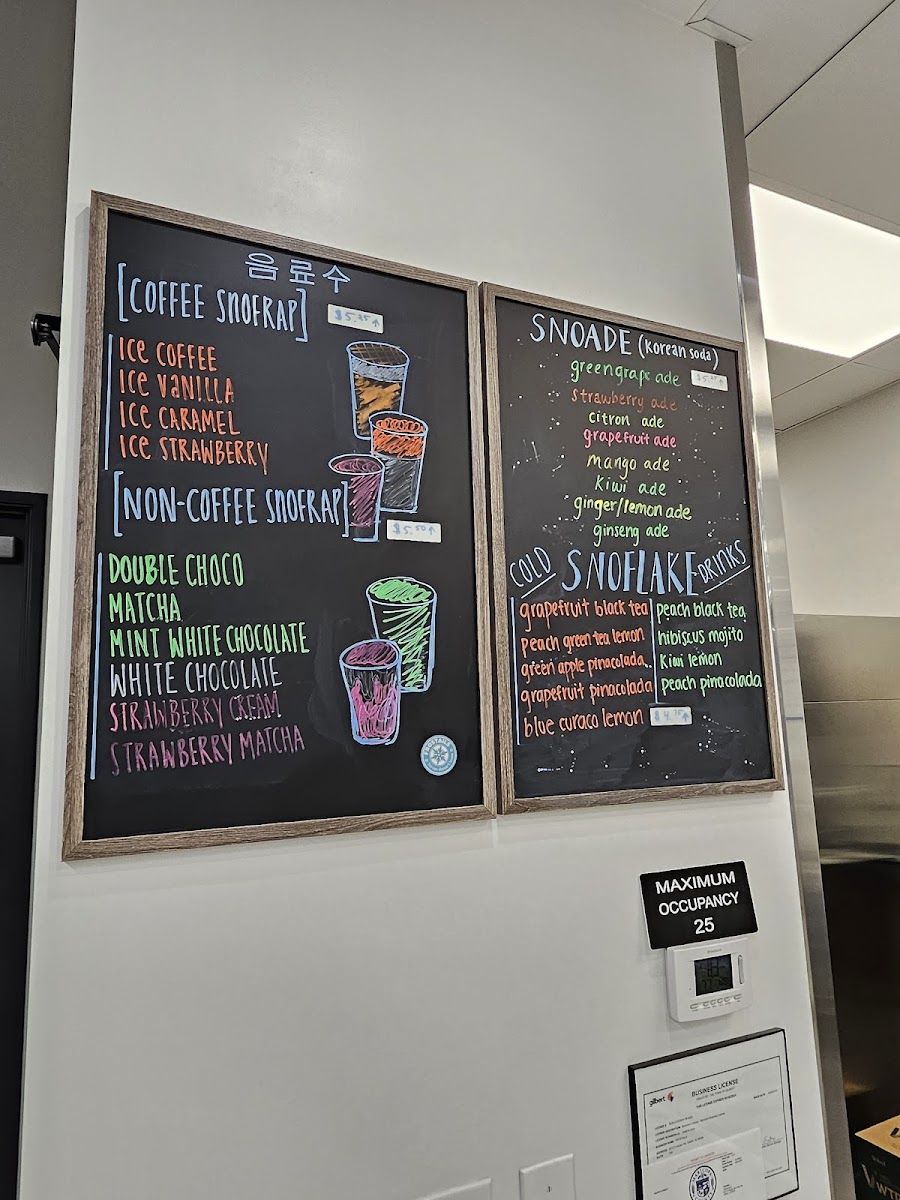 음료수
[COFFEE SNOFRAP]
$5.25↑
ICE COFFEE
ICE VANILLA
ICE CARAMEL
ICE STRAWBERRY
[NON-COFFEE SNOFRAP]
$5.50↑
DOUBLE CHOCO
MATCHA
MINT WHITE CHOCOLATE
WHITE CHOCOLATE
STRAWBERRY CREAM
STRAWBERRY MATCHA
SNOADE (Korean soda)
green grape ade
strawberry ade
citron ade
grapefruit ade
mango ade
kiwi ade
ginger/lemon ade
ginseng ade
COLD SNOFLAKE DRINKS
grapefruit black tea
peach green tea lemon
green apple pinacolada
grapefruit pinacolada
blue curaco lemon
$4.75↑
peach black tea
hibiscus mojito
Kiwi lemon
peach pinacolada
MAXIMUM
OCCUPANCY
25
gilbert
BUSINESS LICENSE